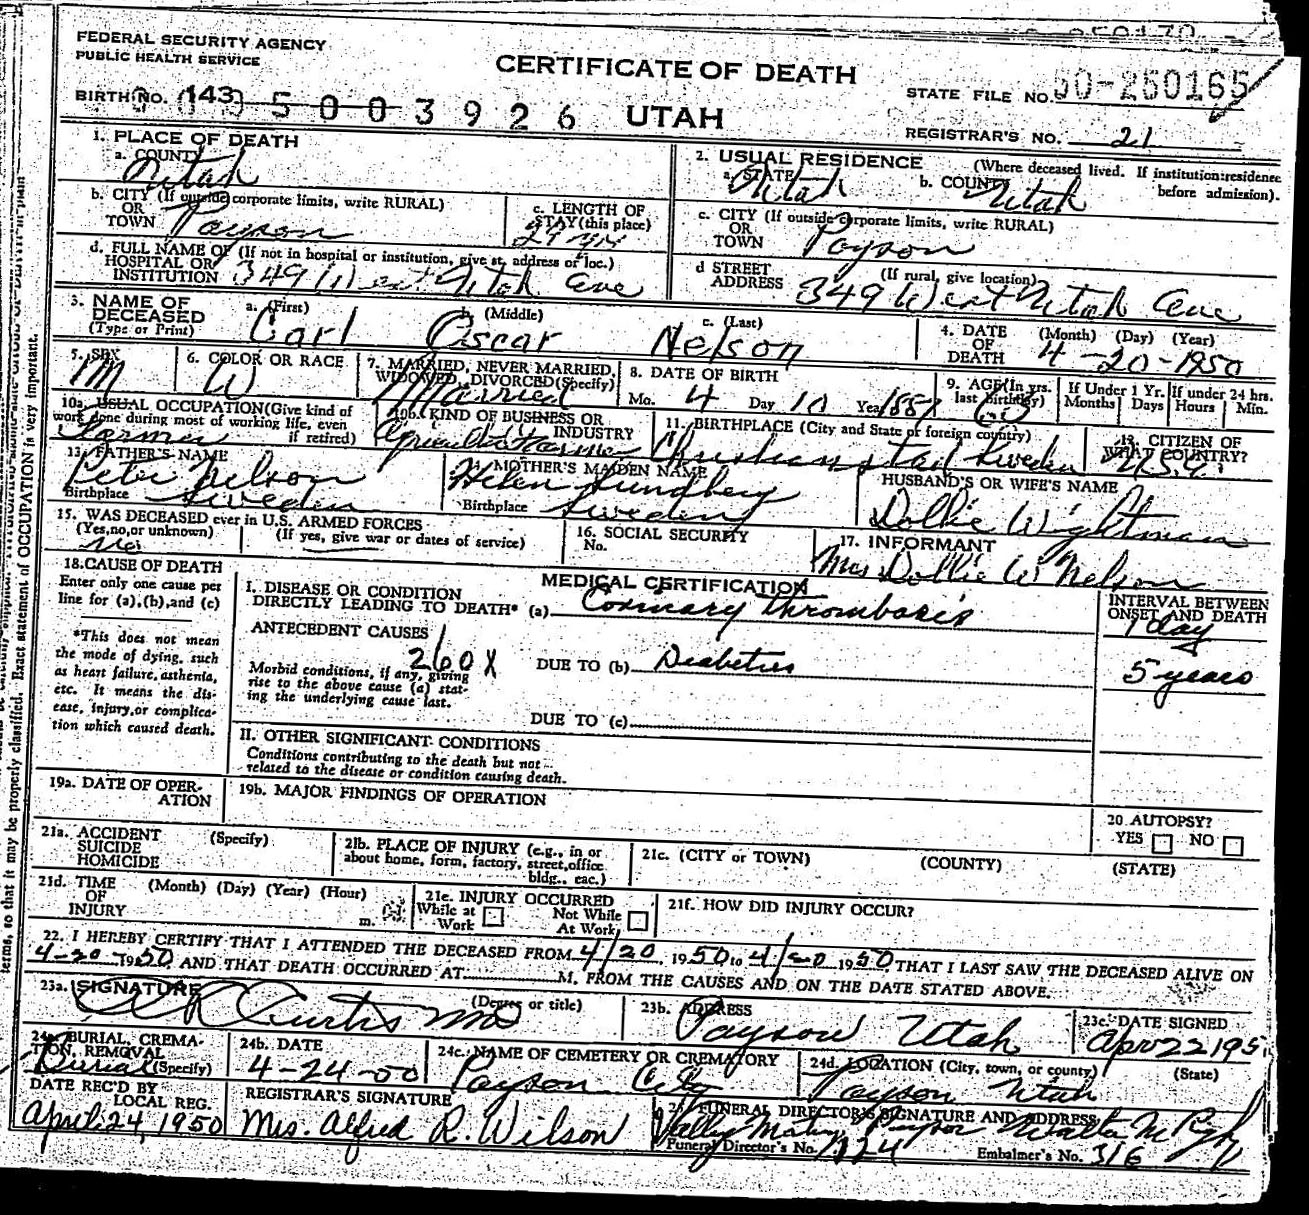 FEDERAL SECURITY AGENCY
PUBLIC HEALTH SERVICE
CERTIFICATE OF DEATH
STATE FILE NO. 50-250165
BIRTH NO. 143 5003926 UTAH
REGISTRAR'S NO. 21
1. PLACE OF DEATH
a. COUNTY Utah
2. USUAL RESIDENCE (Where deceased lived. If institution:residence before admission).
a. STATE Utah b. COUNTY Utah
b. CITY (If outside corporate limits, write RURAL) OR TOWN Payson
c. LENGTH OF STAY (this place)
c. CITY (If outside corporate limits, write RURAL) OR TOWN Payson
d. FULL NAME OF (If not in hospital or institution, give st. address or loc.) HOSPITAL OR INSTITUTION 349 West Utah Ave
d STREET ADDRESS (If rural, give location) 349 West Utah Ave
3. NAME OF DECEASED (Type or Print)
a. (First) Carl b. (Middle) Oscar c. (Last) Nelson
4. DATE OF DEATH (Month) (Day) (Year) 4-20-1950
5. SEX M
6. COLOR OR RACE W
7. MARRIED, NEVER MARRIED, WIDOWED, DIVORCED (Specify) Married
8. DATE OF BIRTH Mo. 4 Day 10 Year 1887
9. AGE (In yrs. last birthday) 63
If Under 1 Yr. Months Days
If under 24 hrs. Hours Min.
10a. USUAL OCCUPATION (Give kind of work done during most of working life, even if retired) Farmer
10b. KIND OF BUSINESS OR INDUSTRY
11. BIRTHPLACE (City and State or foreign country) Christianstad Sweden
12. CITIZEN OF WHAT COUNTRY? U.S.A.
13. FATHER'S NAME Peter Nelson
Birthplace Sweden
MOTHER'S MAIDEN NAME Helen Lundberg
Birthplace Sweden
HUSBAND'S OR WIFE'S NAME
Dollie Wightman
15. WAS DECEASED ever in U.S. ARMED FORCES
(Yes,no,or unknown) (If yes, give war or dates of service)
No
16. SOCIAL SECURITY No.
17. INFORMANT
Mrs Dollie W Nelson
18.CAUSE OF DEATH
Enter only one cause per line for (a),(b),and (c)
*This does not mean the mode of dying, such as heart failure, asthenia, etc. It means the disease, injury,or complication which caused death.
MEDICAL CERTIFICATION
I. DISEASE OR CONDITION DIRECTLY LEADING TO DEATH* (a) Coronary Thrombosis
INTERVAL BETWEEN ONSET AND DEATH
1 day
ANTECEDENT CAUSES
260X
Morbid conditions, if any, giving rise to the above cause (a) stating the underlying cause last.
DUE TO (b) Diabetes
5 years
DUE TO (c)
II. OTHER SIGNIFICANT CONDITIONS
Conditions contributing to the death but not related to the disease or condition causing death.
19a. DATE OF OPERATION
19b. MAJOR FINDINGS OF OPERATION
20 AUTOPSY?
YES NO
21a. ACCIDENT SUICIDE HOMICIDE (Specify)
21b. PLACE OF INJURY (e.g., in or about home, form, factory, street,office bldg., eac.)
21c. (CITY or TOWN) (COUNTY) (STATE)
21d. TIME OF INJURY (Month) (Day) (Year) (Hour) m.
21e. INJURY OCCURRED
While at Work Not While At Work
21f. HOW DID INJURY OCCUR?
22. I HEREBY CERTIFY THAT I ATTENDED THE DECEASED FROM 4/20, 1950 to 4/20 1950, THAT I LAST SAW THE DECEASED ALIVE ON
4-20 1950 AND THAT DEATH OCCURRED AT M. FROM THE CAUSES AND ON THE DATE STATED ABOVE.
23a. SIGNATURE (Degree or title)
Curtis MD
23b. ADDRESS
Payson Utah
23c. DATE SIGNED
Apr 22 195
24a. BURIAL, CREMATION, REMOVAL (Specify) Burial
24b. DATE
4-24-50
24c. NAME OF CEMETERY OR CREMATORY
Payson City
24d. LOCATION (City, town, or county) (State)
Payson Utah
DATE REC'D BY LOCAL REG.
April 24, 1950
REGISTRAR'S SIGNATURE
Mrs. Alfred R. Wilson
25. FUNERAL DIRECTOR'S SIGNATURE AND ADDRESS
Funeral Director's No.
Embalmer's No. 316
terms, so that it may be properly classified. Exact statement of OCCUPATION is very important.